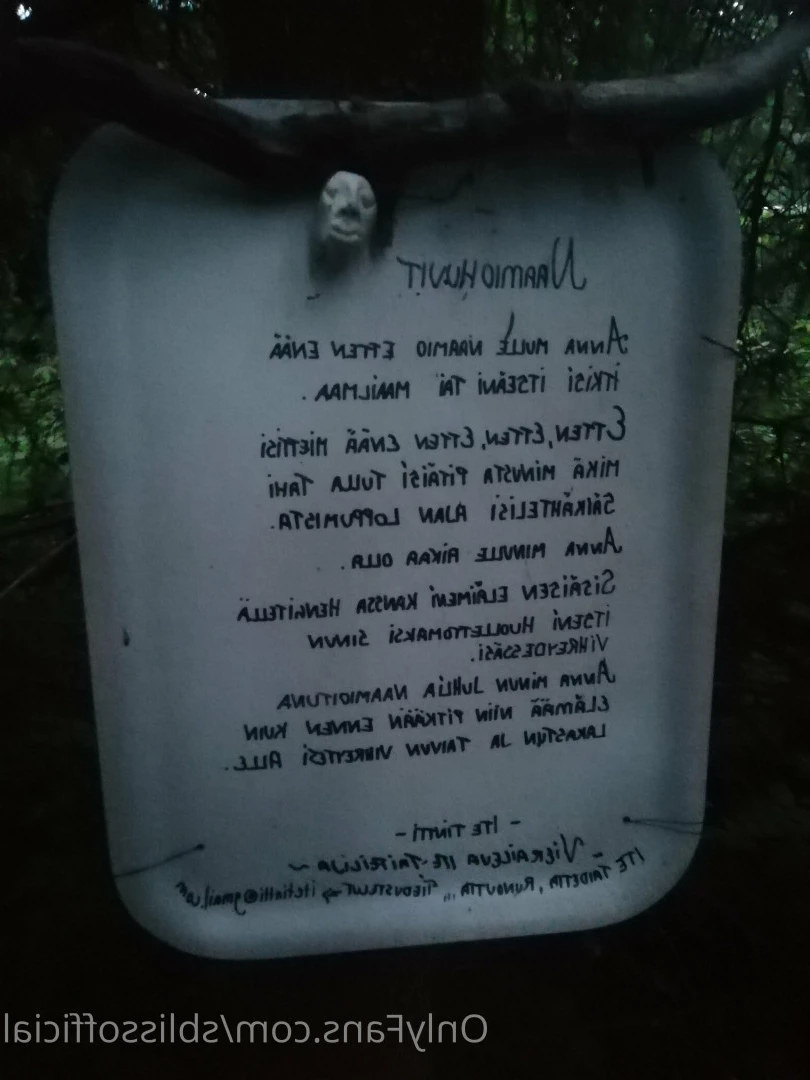 NAAMIOHUVIT
ANNA MULLE NAAMIO ETTEN ENÄÄ
ITKISI ITSEÄNI TAI MAAILMAA.
ETTEN, ETTEN, ETTEN ENÄÄ MIETTISI
MIKÄ MINUSTA PITÄISI TULLA TAHI
SÄIKÄHTELISI AJAN LOPPUMISTA.
ANNA MINULLE AIKAA OLLA.
SISÄISEN ELÄIMENI KANSSA HENGITELLÄ
ITSENI HUOLETTOMAKSI SINUN
VIHREYDESSÄSI.
ANNA MINUN JUHLIA NAAMIOITUNA
ELÄMÄÄ NIIN PITKÄÄN ENNEN KUIN
LAKASTUN JA TAIVUN VIHREYTESI ALLE.
- ITE TINTTI -
~ VIERAILEVA ITE-TAITEILIJA ~
ITE TAIDETTA, RUNOUTTA,,, TIEDUSTELUT →
OnlyFans.com/sblissofficial